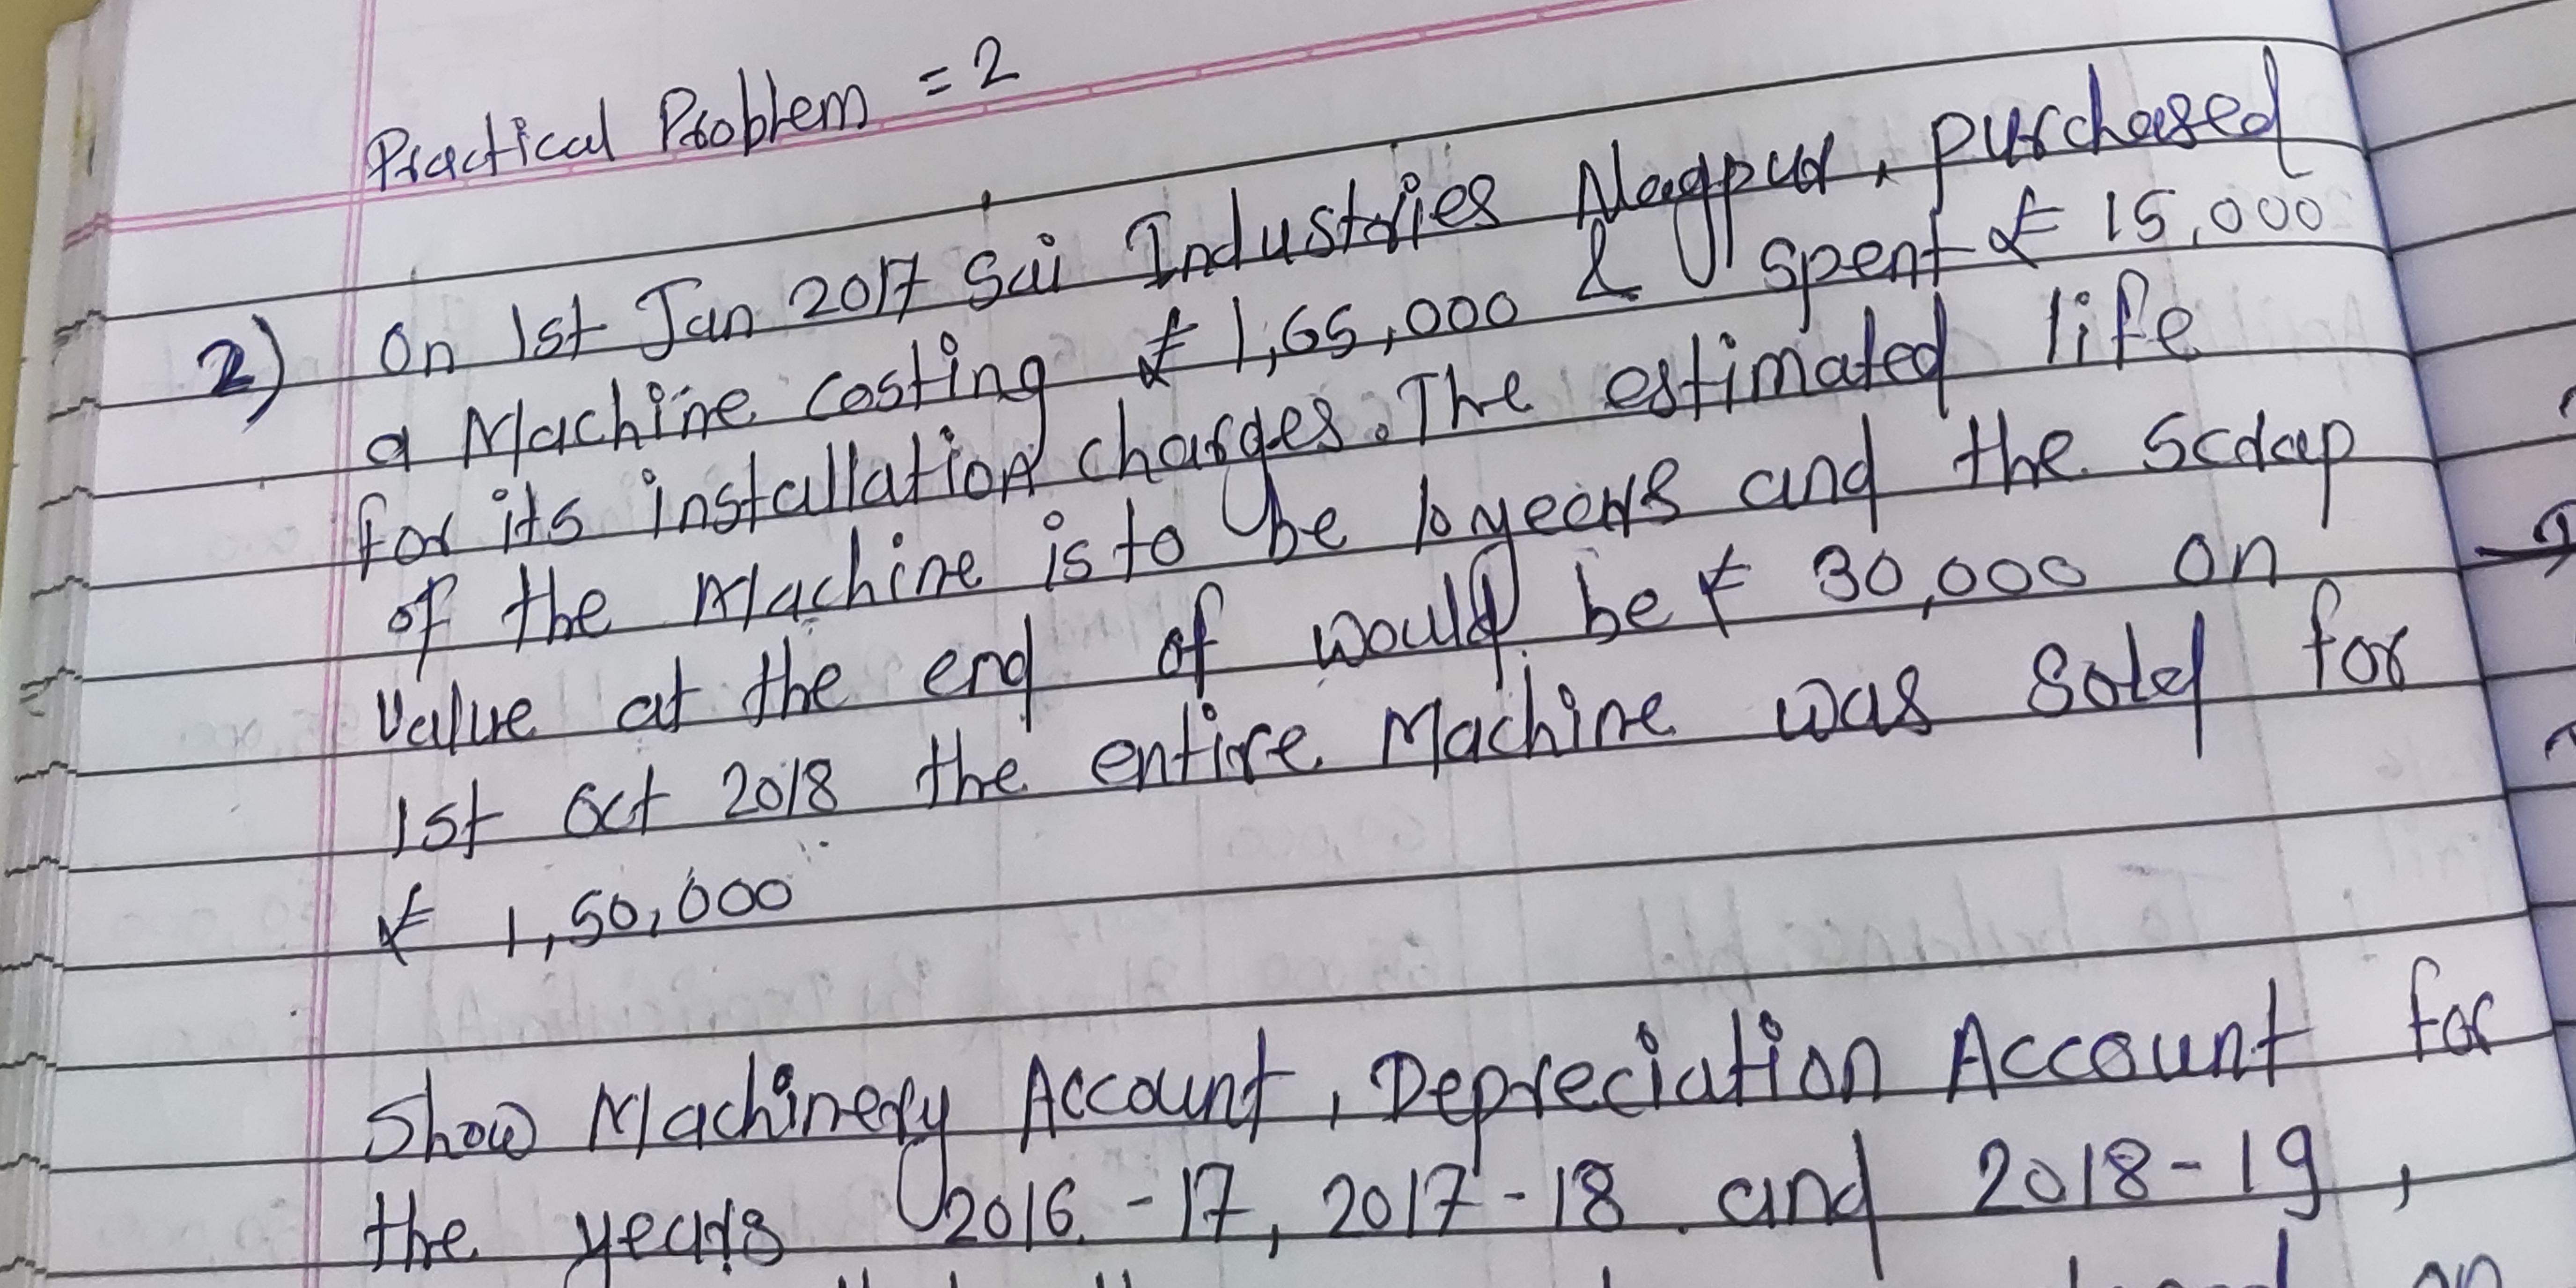 Practical Problem = 2
2) On 1st Jan 2017 Sai Industries Nagpur, purchased
a Machine costing ₹ 1,65,000 & spent ₹ 15,000
for its installation charges. The estimated life
of the Machine is to be 10 years and the scrap
value at the end of would be ₹ 30,000 on
1st Oct 2018 the entire Machine was sold for
₹ 1,50,000
Show Machinery Account, Depreciation Account for
the years 2016-17, 2017-18 and 2018-19,